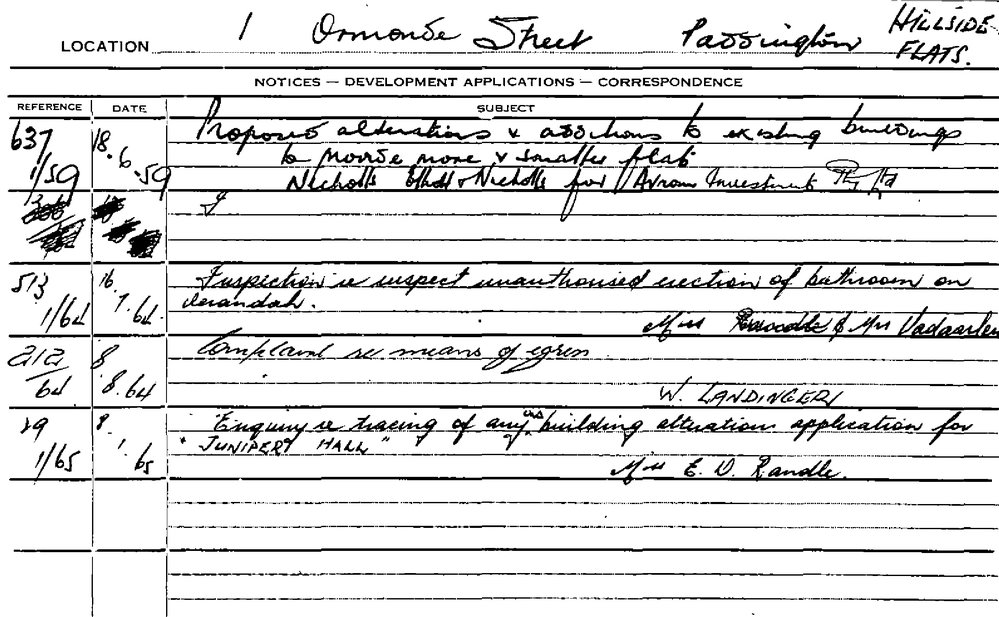 LOCATION 1 Ormonde Street Paddington HILLSIDE
FLATS.
NOTICES — DEVELOPMENT APPLICATIONS — CORRESPONDENCE
REFERENCE DATE SUBJECT
637 18. Proposed alterations & additions to existing buildings
1/59 6.59 to provide more & smaller flats
Nicholls Elliott & Nicholls for Avrom Investments Pty Ltd
513 16. Inspection re suspect unauthorised erection of bathroom on
1/64 7.64. verandah.
Mrs & Mrs
212 8 Complaint re means of egress
64 8.64 W. LANDINGER
29 8. Enquiry re tracing of any old building alterations application for
1/65 1 65 "JUNIPER HALL"
Mrs E. D. Randle.